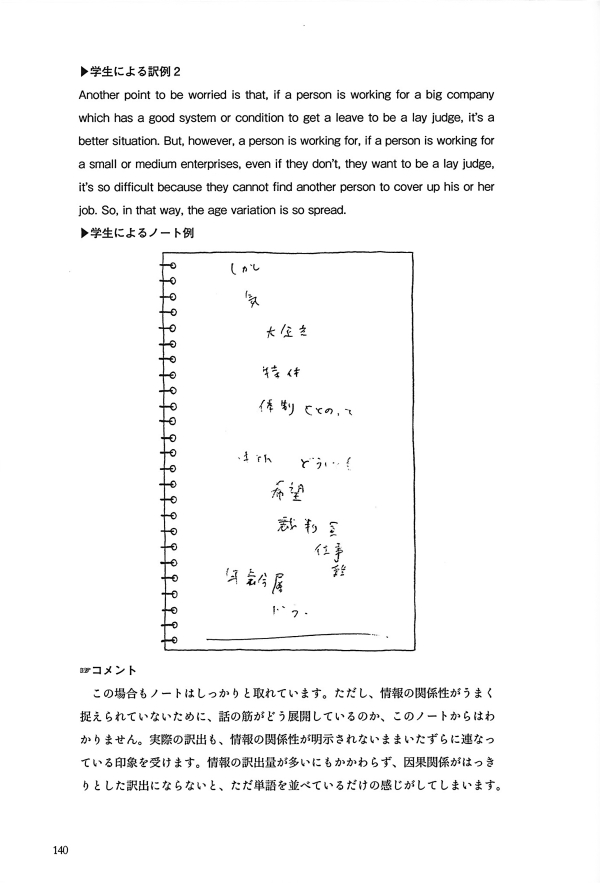 ▶学生による訳例2
Another point to be worried is that, if a person is working for a big company
which has a good system or condition to get a leave to be a lay judge, it's a
better situation. But, however, a person is working for, if a person is working for
a small or medium enterprises, even if they don't, they want to be a lay judge,
it's so difficult because they cannot find another person to cover up his or her
job. So, in that way, the age variation is so spread.
▶学生によるノート例
しかし
大企き
体制 ととのって
どう
希望
裁判
仕事
コメント
この場合もノートはしっかりと取れています。ただし、情報の関係性がうまく
捉えられていないために、話の筋がどう展開しているのか、このノートからはわ
かりません。実際の訳出も、情報の関係性が明示されないままいたずらに連なっ
ている印象を受けます。情報の訳出量が多いにもかかわらず、因果関係がはっき
りとした訳出にならないと、ただ単語を並べているだけの感じがしてしまいます。
140